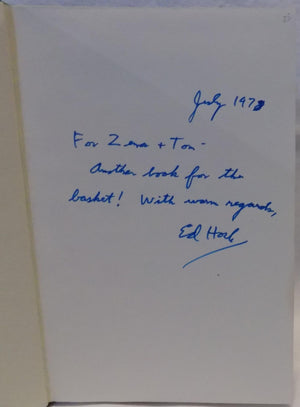 July 1978
For Zena + Tom -
Another book for the
basket! With warm regards,
Ed Hoch